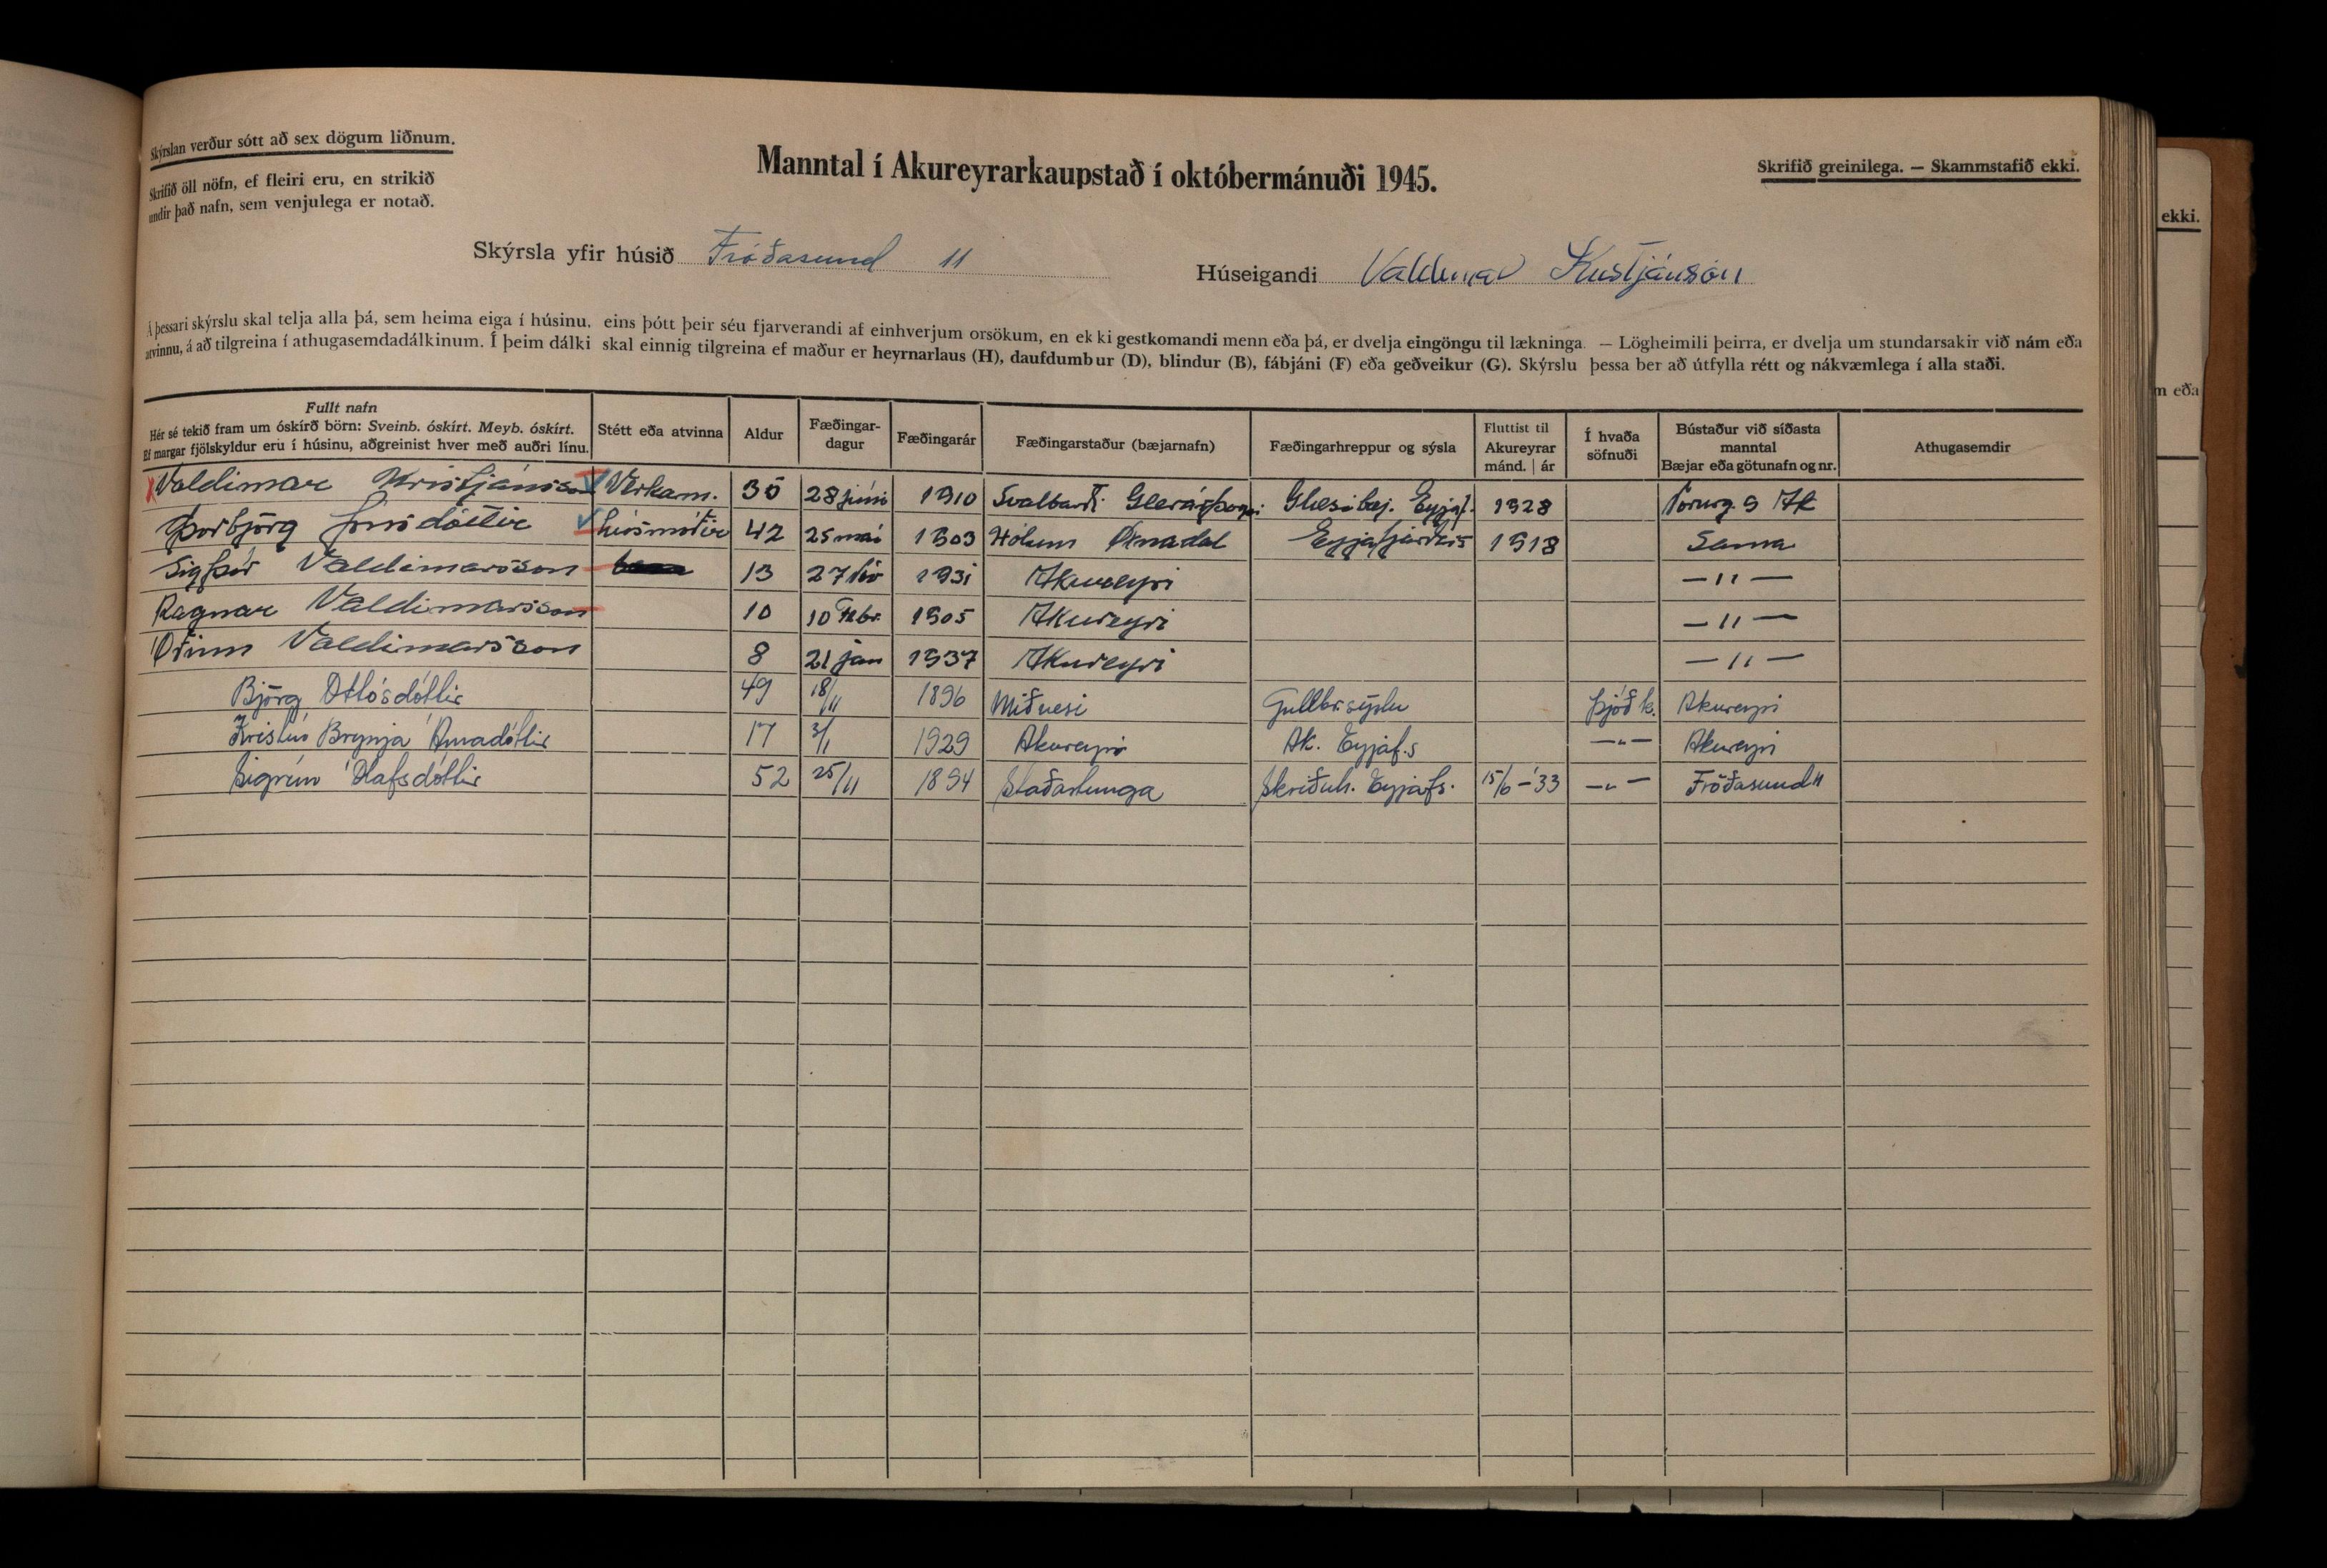 Skýrslan verður sótt að sex dögum liðnum.
Skrifið öll nöfn, ef fleiri eru, en strikið
undir það nafn, sem venjulega er notað.
Manntal í Akureyrarkaupstað í októbermánuði 1945.
Skrifið greinilega. — Skammstafið ekki.
ekki.
Skýrsla yfir húsið Fróðasund 11
Húseigandi Valdimar Kristjánsson
Á þessari skýrslu skal telja alla þá, sem heima eiga í húsinu, eins þótt þeir séu fjarverandi af einhverjum orsökum, en ekki gestkomandi menn eða þá, er dvelja eingöngu til lækninga. — Lögheimili þeirra, er dvelja um stundarsakir við nám eða
atvinnu, á að tilgreina í athugasemdadálkinum. Í þeim dálki skal einnig tilgreina ef maður er heyrnarlaus (H), daufdumbur (D), blindur (B), fábjáni (F) eða geðveikur (G). Skýrslu þessa ber að útfylla rétt og nákvæmlega í alla staði.
m eða
Fullt nafn
Hér sé tekið fram um óskírð börn: Sveinb. óskírt. Meyb. óskírt.
Ef margar fjölskyldur eru í húsinu, aðgreinist hver með auðri línu.
Stétt eða atvinna
Aldur
Fæðingar-
dagur
Fæðingarár
Fæðingarstaður (bæjarnafn)
Fæðingarhreppur og sýsla
Fluttist til
Akureyrar
mánd. | ár
Í hvaða
söfnuði
Bústaður við síðasta
manntal
Bæjar eða götunafn og nr.
Athugasemdir
Valdimar Kristjánsson Verkam. 35 28 júní 1910 Svalbarði Glerárþorpi Glæsibæj. Eyjaf. 1928 Norurg. 9 Ak
Þorbjörg Jónsdóttir húsmóðir 42 25 maí 1903 Hólum Öxnadal Eyjafjarðars 1918 Sama
Sigþór Valdimarsson 13 27 nóv 1931 Akureyri — 11 —
Ragnar Valdimarsson 10 10 Febr. 1905 Akureyri — 11 —
Óðinn Valdimarsson 8 21 jan 1937 Akureyri — 11 —
Björg Ottósdóttir 49 18/11 1896 Miðnesi Gullbr.sýslu Þjóðk. Akureyri
Kristín Brynja Árnadóttir 17 3/1 1929 Akureyri Ak. Eyjaf.s —"— Akureyri
Sigrún Ólafsdóttir 52 25/11 1894 Staðartunga Skriðuh. Eyjafs. 15/6 – '33 —"— Fróðasund 11